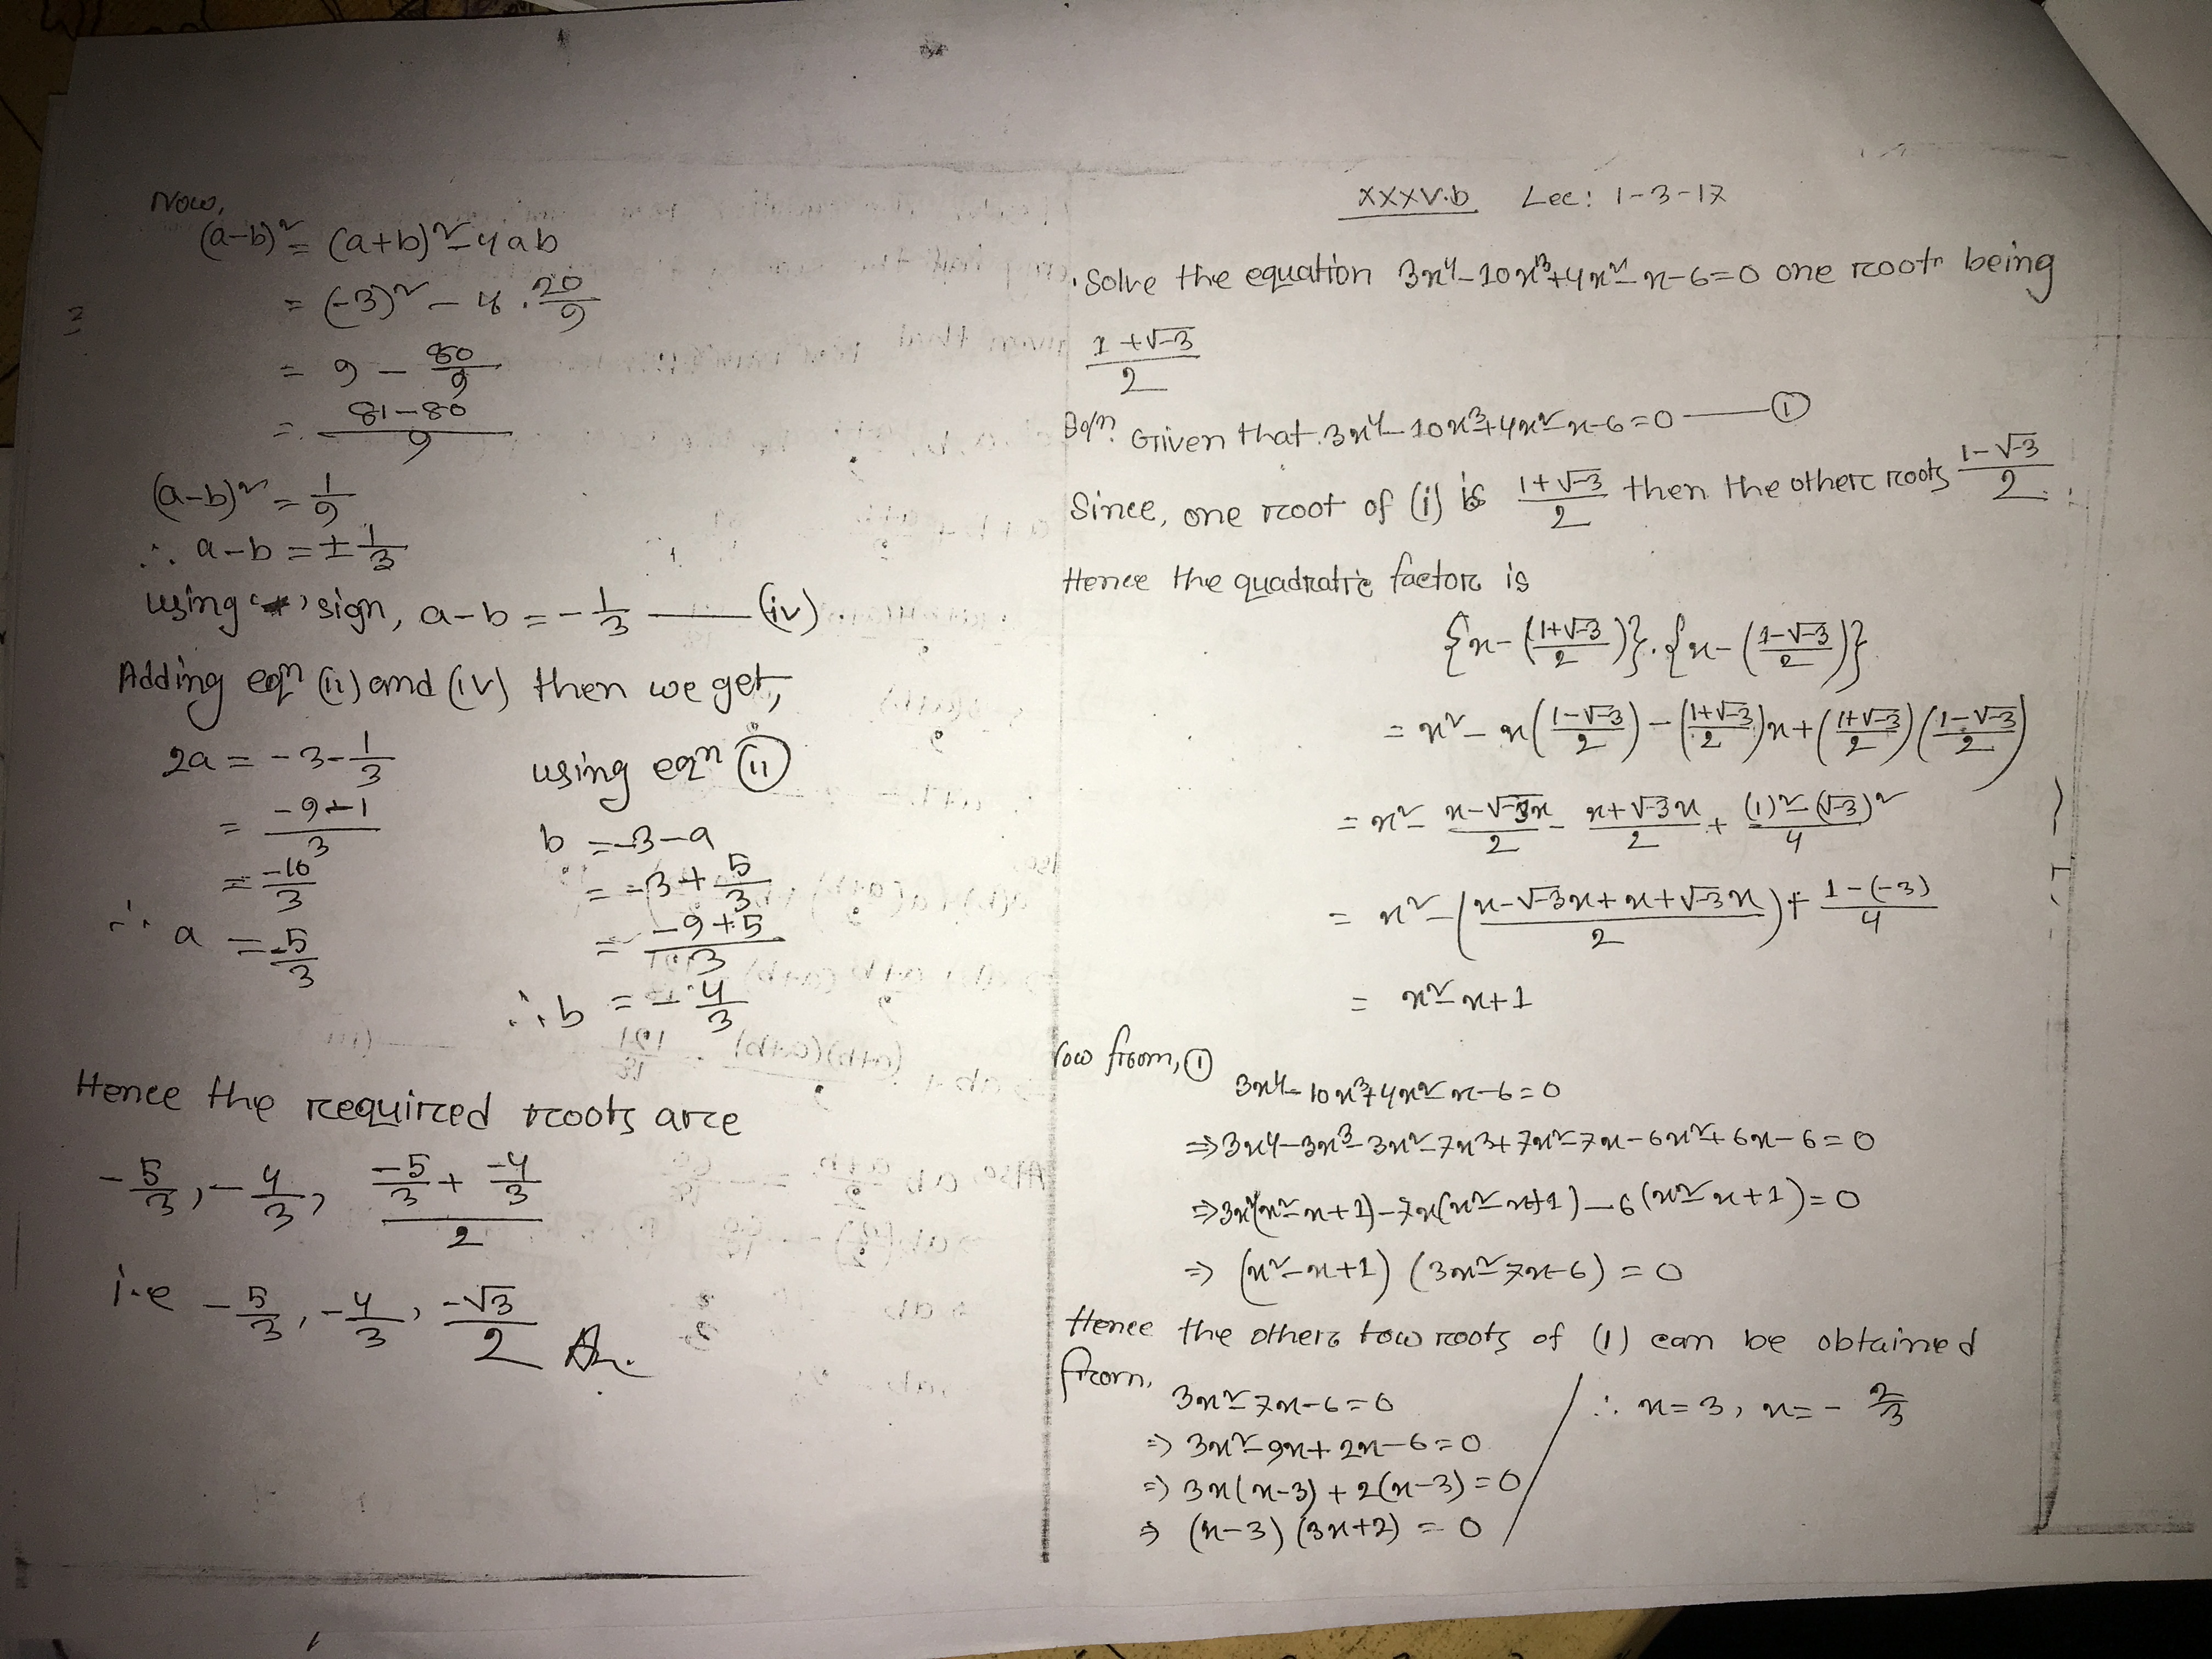 Now,
(a-b)² = (a+b)² - 4ab
= (-3)² - 4 · 20/9
= 9 - 80/9
= (81-80)/9
(a-b)² = 1/9
∴ a-b = ± 1/3
using '-' sign, a-b = -1/3 —— (iv)
Adding eqn (ii) and (iv) then we get,
2a = -3 - 1/3
= (-9-1)/3
= -10/3
∴ a = -5/3
using eqn (ii)
b = -3-a
= -3 + 5/3
= (-9+5)/3
∴ b = -4/3
Hence the required roots are
-5/3, -4/3, (-5/3 + -4/3)/2
i.e -5/3, -4/3, -√3/2 An.
XXXV.b Lec: 1-3-17
Solve the equation 3x⁴-10x³+4x²-x-6=0 one root being
(1+√-3)/2
Given that 3x⁴-10x³+4x²-x-6=0 —— (1)
Since, one root of (i) is (1+√-3)/2 then the other roots (1-√-3)/2
Hence the quadratic factor is
{x-((1+√-3)/2)}.{x-((1-√-3)/2)}
= x² - x((1-√-3)/2) - ((1+√-3)/2)x + ((1+√-3)/2)((1-√-3)/2)
= x² - (x-√-3x)/2 - (x+√-3x)/2 + ((1)²-(√-3)²)/4
= x² - ((x-√-3x+x+√-3x)/2) + (1-(-3))/4
= x²-x+1
Now from, (1)
3x⁴-10x³+4x²-x-6=0
⇒ 3x⁴-3x³-3x²-7x³+7x²-7x-6x²+6x-6=0
⇒ 3x²(x²-x+1)-7x(x²-x+1)-6(x²-x+1)=0
⇒ (x²-x+1) (3x²-7x-6) = 0
Hence the other tow roots of (1) can be obtained
from,
3x²-7x-6=0
⇒ 3x²-9x+2x-6=0
⇒ 3x(x-3)+2(x-3)=0
⇒ (x-3) (3x+2) = 0
∴ x=3, x=-2/3